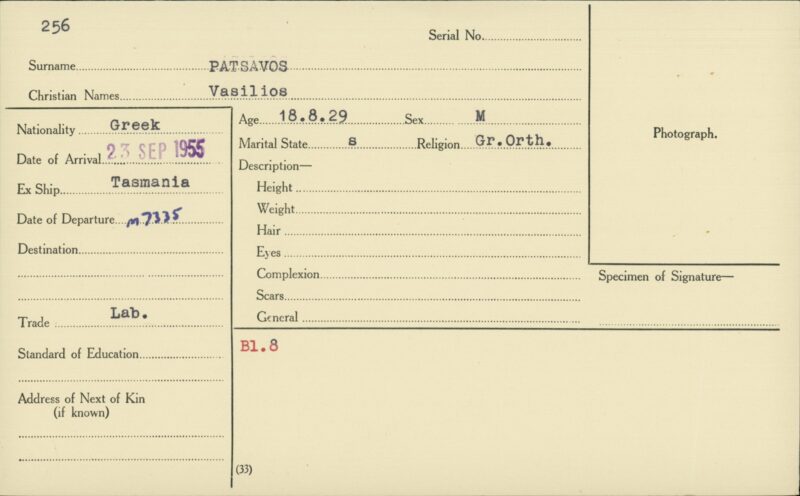 256
Serial No.
Surname PATSAVOS
Christian Names Vasilios
Nationality Greek
Date of Arrival 23 SEP 1955
Ex Ship Tasmania
Date of Departure m7335
Destination
Trade Lab.
Standard of Education
Address of Next of Kin
(if known)
Age 18.8.29 Sex M
Marital State s Religion Gr.Orth.
Description—
Height
Weight
Hair
Eyes
Complexion
Scars
General
Bl.8
(33)
Photograph.
Specimen of Signature—